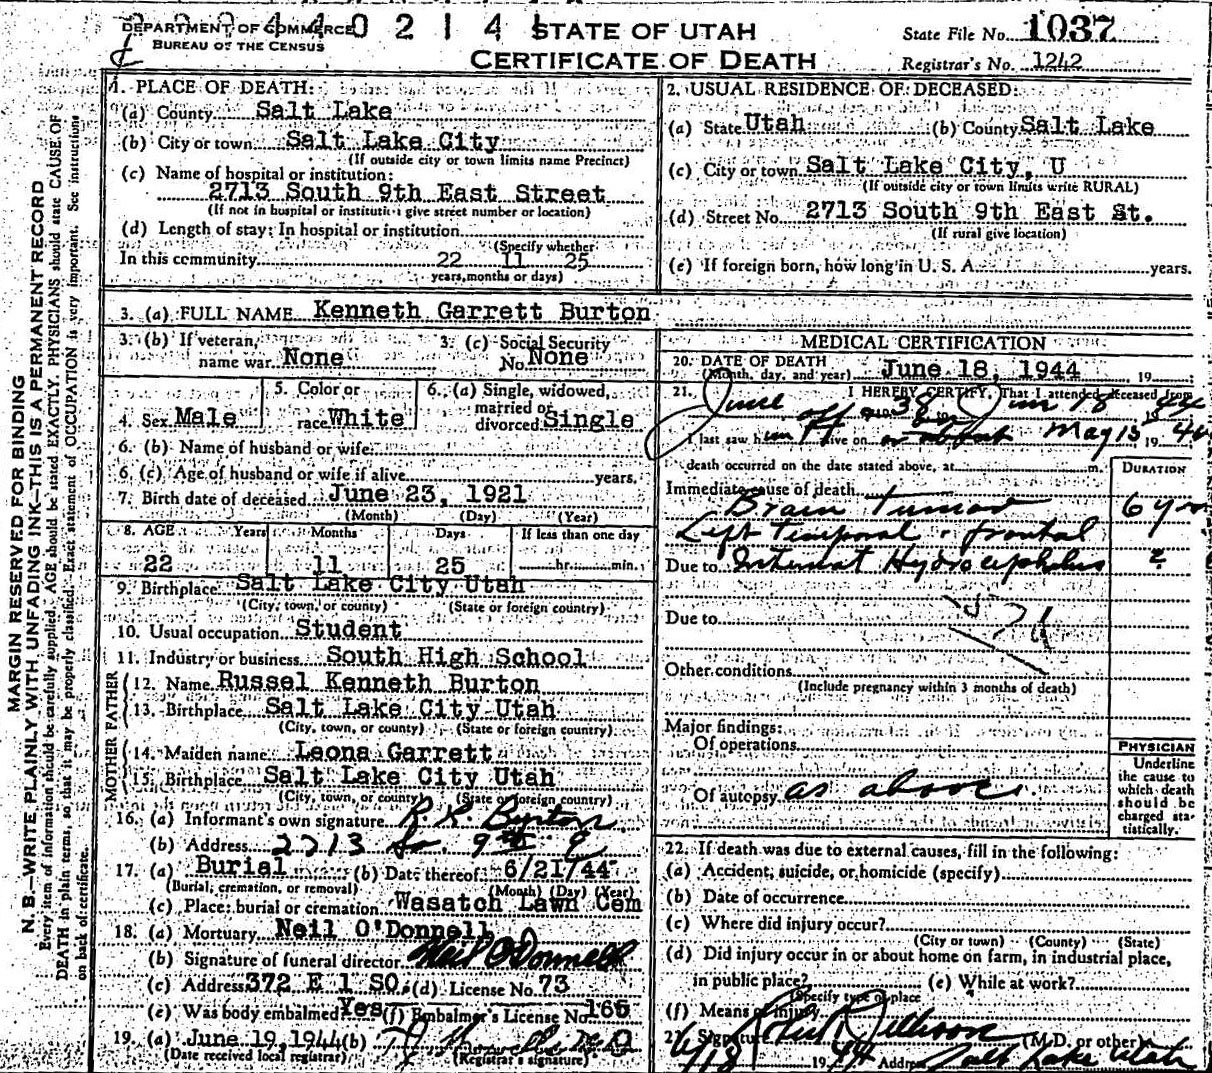 DEPARTMENT OF COMMERCE
BUREAU OF THE CENSUS
0 2 1 4
STATE OF UTAH
CERTIFICATE OF DEATH
State File No. 1037
Registrar's No. 1242
MARGIN RESERVED FOR BINDING
N. B.—WRITE PLAINLY WITH UNFADING INK—THIS IS A PERMANENT RECORD
Every item of information should be carefully supplied. AGE should be stated EXACTLY. PHYSICIANS should state CAUSE OF
DEATH in plain terms, so that it may be properly classified. Exact statement of OCCUPATION is very important. See instructions
on back of certificate.
1. PLACE OF DEATH:
(a) County Salt Lake
(b) City or town Salt Lake City
(If outside city or town limits name Precinct)
(c) Name of hospital or institution:
2713 South 9th East Street
(If not in hospital or institution give street number or location)
(d) Length of stay: In hospital or institution
(Specify whether
In this community 22 11 25
years, months or days)
2. USUAL RESIDENCE OF DECEASED:
(a) State Utah (b) County Salt Lake
(c) City or town Salt Lake City, U
(If outside city or town limits write RURAL)
(d) Street No. 2713 South 9th East St.
(If rural give location)
(e) If foreign born, how long in U. S. A. years.
3. (a) FULL NAME Kenneth Garrett Burton
3. (b) If veteran, name war None
3. (c) Social Security No. None
4. Sex Male
5. Color or race White
6. (a) Single, widowed, married or divorced Single
6. (b) Name of husband or wife
6. (c) Age of husband or wife if alive years.
7. Birth date of deceased June 23, 1921
(Month) (Day) (Year)
8. AGE Years Months Days If less than one day
22 11 25 hr. min.
9. Birthplace Salt Lake City Utah
(City, town, or county) (State or foreign country)
10. Usual occupation Student
11. Industry or business South High School
FATHER
12. Name Russel Kenneth Burton
13. Birthplace Salt Lake City Utah
(City, town, or county) (State or foreign country)
MOTHER
14. Maiden name Leona Garrett
15. Birthplace Salt Lake City Utah
(City, town, or county) (State or foreign country)
16. (a) Informant's own signature R. K. Burton
(b) Address 2713 So. 9th E
17. (a) Burial (b) Date thereof 6/21/44
(Burial, cremation, or removal) (Month) (Day) (Year)
(c) Place: burial or cremation Wasatch Lawn Cem
18. (a) Mortuary Neil O'Donnell
(b) Signature of funeral director Neil O'Donnell
(c) Address 372 E 1 SO. (d) License No. 73
(e) Was body embalmed? Yes (f) Embalmer's License No. 165
19. (a) June 19, 1944 (b)
(Date received local registrar) (Registrar's signature)
MEDICAL CERTIFICATION
20. DATE OF DEATH
(Month, day, and year) June 18, 1944 19
21. I HEREBY CERTIFY, That I attended deceased from
June off 38 to Jun 18 1944
I last saw him alive on or about May 15 1944
death occurred on the date stated above, at m.
DURATION
Immediate cause of death
Brain Tumor 6 yrs
Left Temporal - frontal
Due to Internal Hydrocephalus ?
Due to
Other conditions
(Include pregnancy within 3 months of death)
Major findings:
Of operations
Of autopsy as above.
PHYSICIAN
Underline
the cause to
which death
should be
charged sta-
tistically.
22. If death was due to external causes, fill in the following:
(a) Accident, suicide, or homicide (specify)
(b) Date of occurrence
(c) Where did injury occur?
(City or town) (County) (State)
(d) Did injury occur in or about home on farm, in industrial place,
in public place? (e) While at work?
(Specify type of place
(f) Means of injury
23. Signature (M.D. or other)
6/18 1944 Address Salt Lake Utah